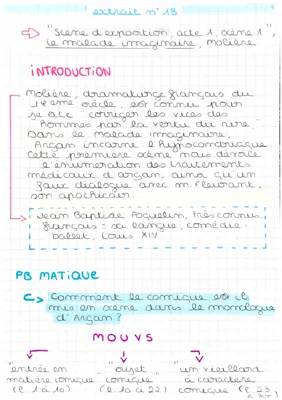 extrait n° 18
⇒ "Scène d'exposition, acte 1, scène 1",
le malade imaginaire, molière
INTRODUCTION
Molière, dramaturge français du
17 eme siècle, est connu pour
corriger les vices des
hommes par la vertu du rire.
Dans le malade imaginaire,
Argan incarne l'hypocondriaque
Cette première scène nous dévoile
l'énumération des traitements
médicaux d'argan, ainsi qu'un
faux dialogue avec m. fleurant,
son apothicair.
Jean Baptiste Poquelin, très connu,
français = sa langue, comédie-
ballet, Louis XIV
PB MATIQUE
Comment le comique est il
mis en scène dans le monologue
d'Argan ?
MOUVS
"entrée en "objet "un vieillard
matière comique comique" à caractère
(l 1 à 10) (l 10 à 22) comique (l 23